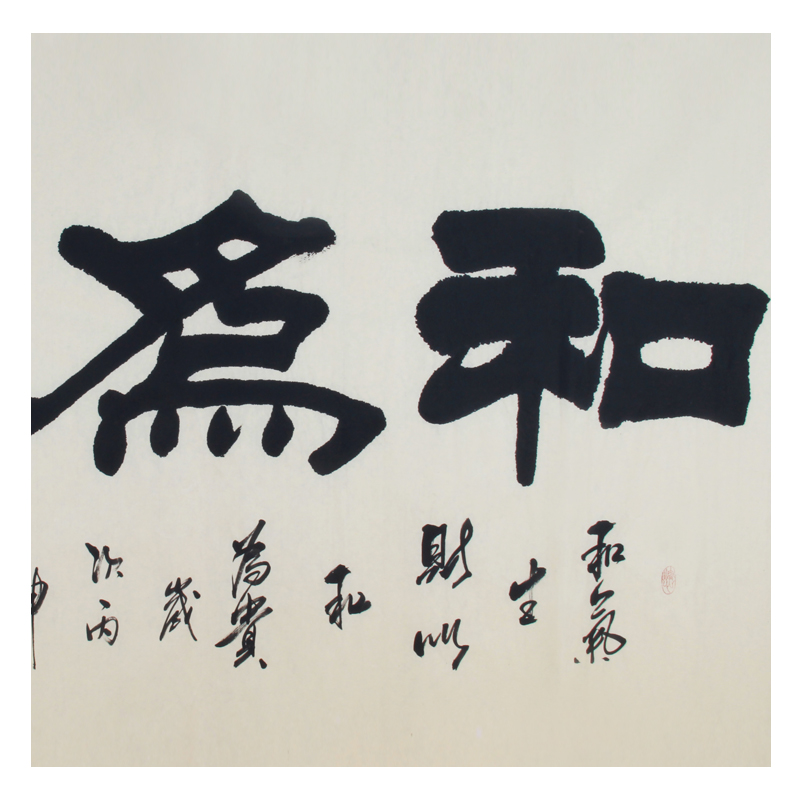 和為
和氣
生
財以
和
為貴
歲
次丙
申